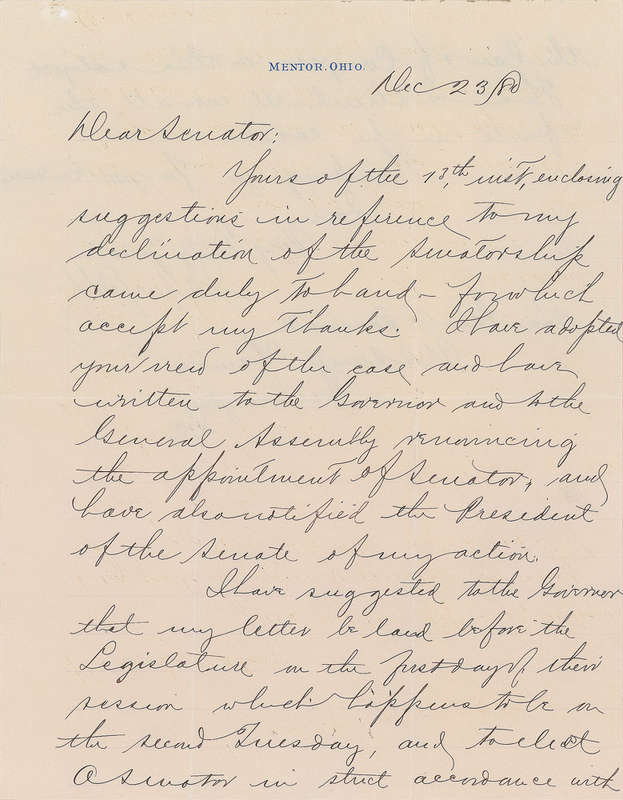 MENTOR. OHIO.
Dec 23/80
Dear Senator:
Yours of the 13,th inst, enclosing
suggestions in reference to my
declination of the Senatorship
came duly to hand – for which
accept my thanks. I have adopted
your view of the case and have
written to the Governor and to the
General Assembly renouncing
the appointment of Senator, and
have also notified the President
of the Senate of my action.
I have suggested to the Governor
that my letter be laid before the
Legislature on the first day of their
session which happens to be on
the second Tuesday, and to elect
a Senator in strict accordance with